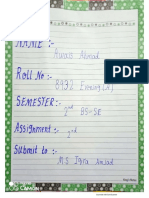 NAME :-
Awais Ahmad
Roll No :-
8932 Evening (A)
SEMESTER :-
2nd BS-SE
Assignment :-
2nd
Submit to :-
M.S Iqra Amjad